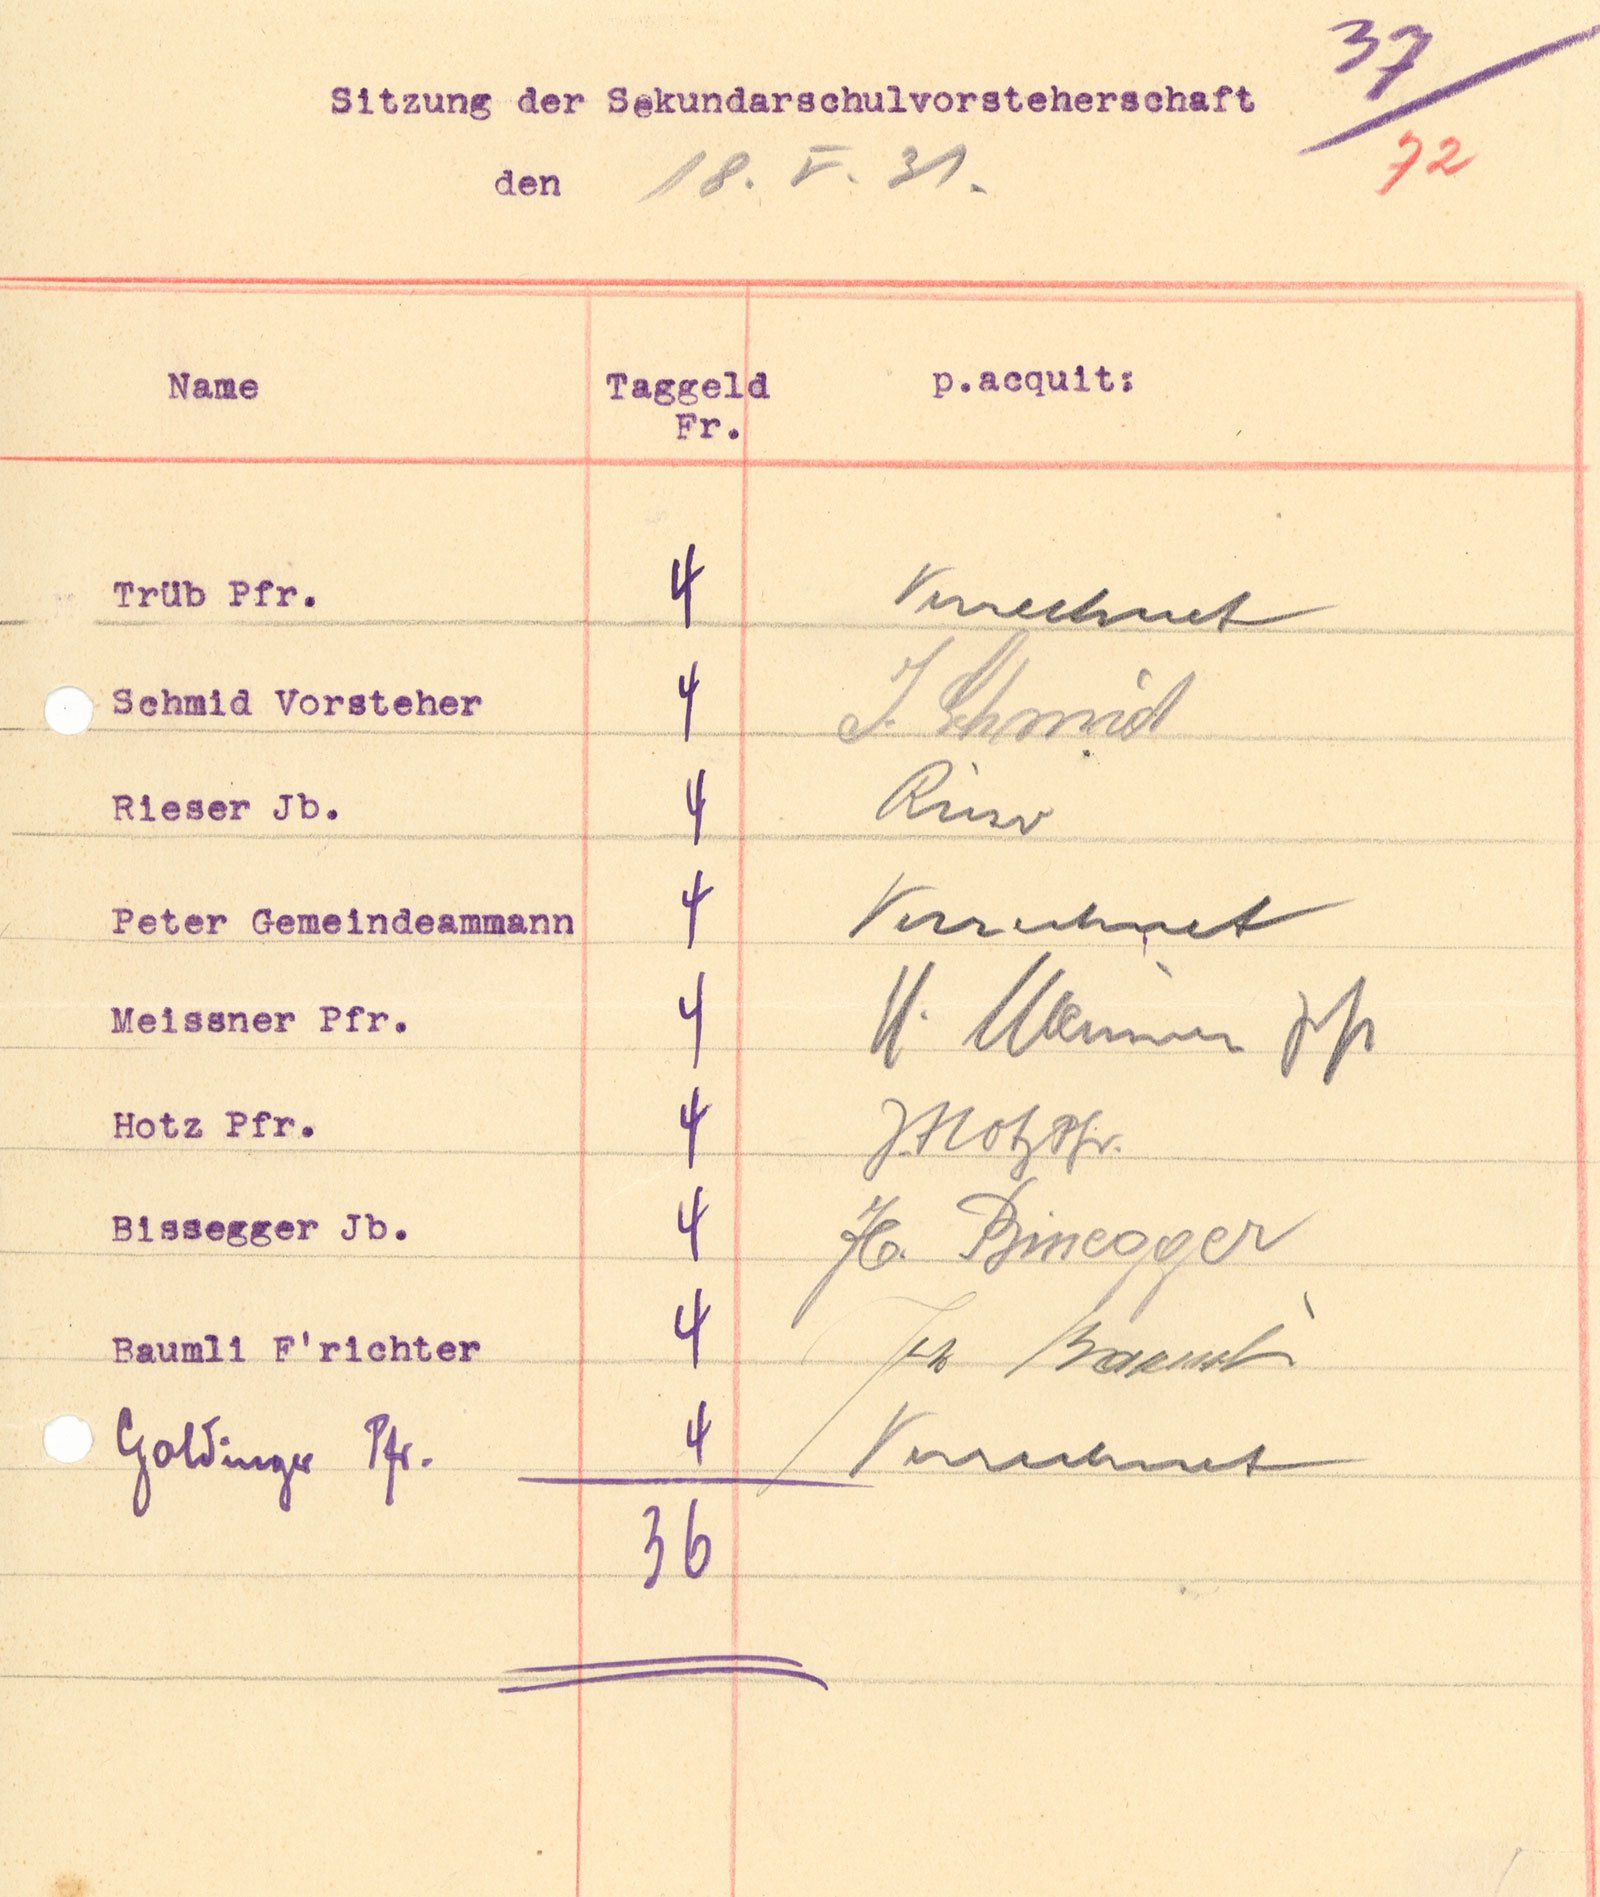 37
Sitzung der Sekundarschulvorsteherschaft
72
den 18. V. 31.
Name Taggeld p.acquit:
Fr.
Trüb Pfr. 4 Verrechnet
Schmid Vorsteher 4 J. Schmid
Rieser Jb. 4 Rieser
Peter Gemeindeammann 4 Verrechnet
Meissner Pfr. 4 Meissner Pfr
Hotz Pfr. 4 J. Hotz Pfr.
Bissegger Jb. 4 Bissegger
Baumli F'richter 4 Baumli
Goldinger Pfr. 4 Verrechnet
36